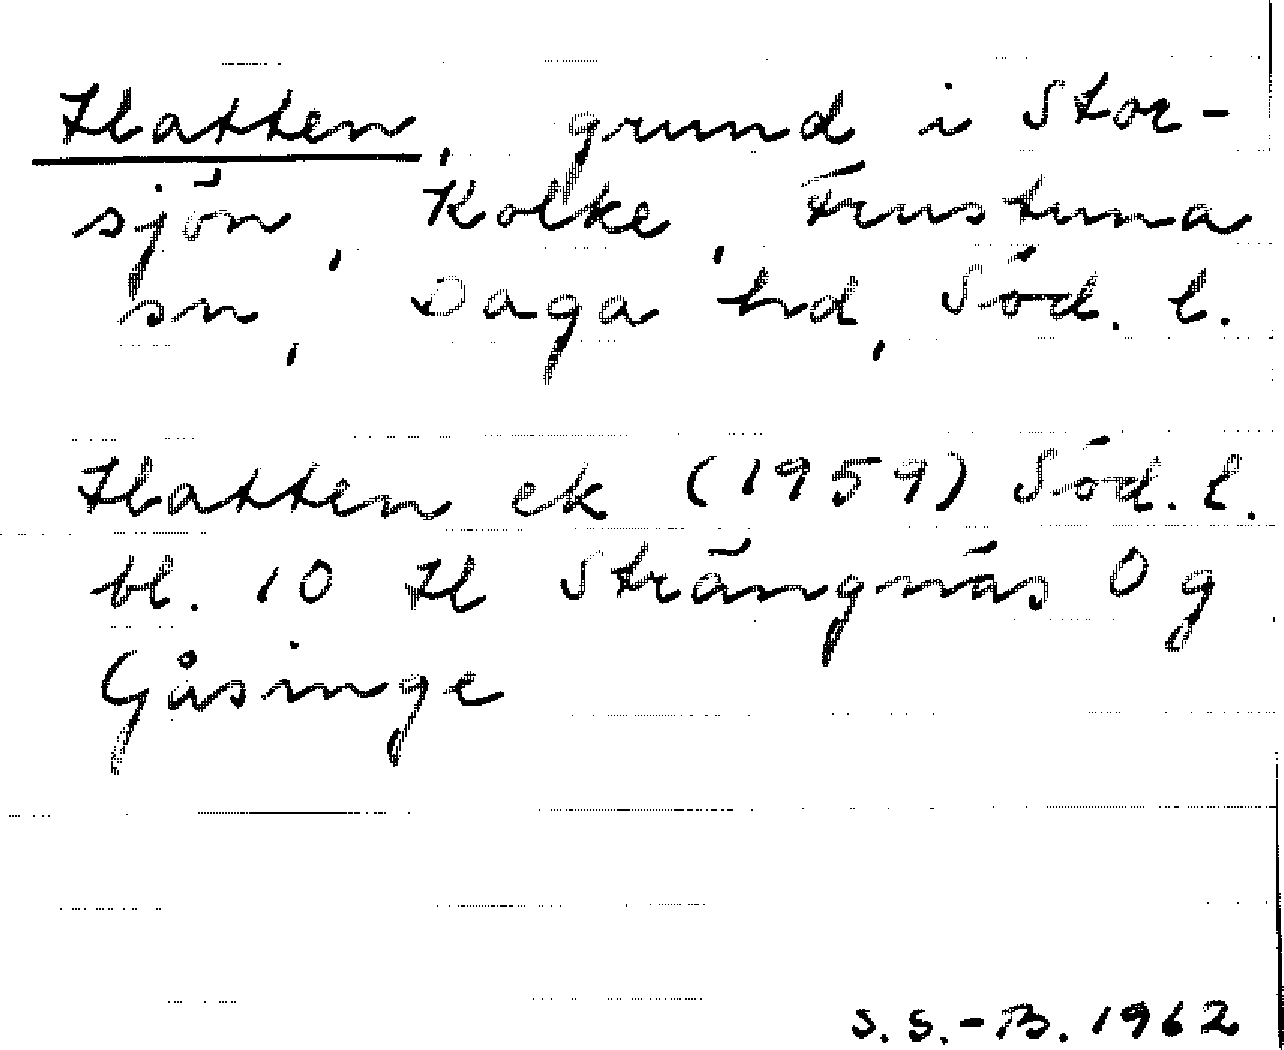 Hatten, grund i Stor-
sjön, Kolke, Frustuna
sn, Daga hd, Söd. l.
Hatten ek (1959) Söd. l.
bl. 10 H Strängnäs Ög
Gåsinge
S. S.-B. 1962